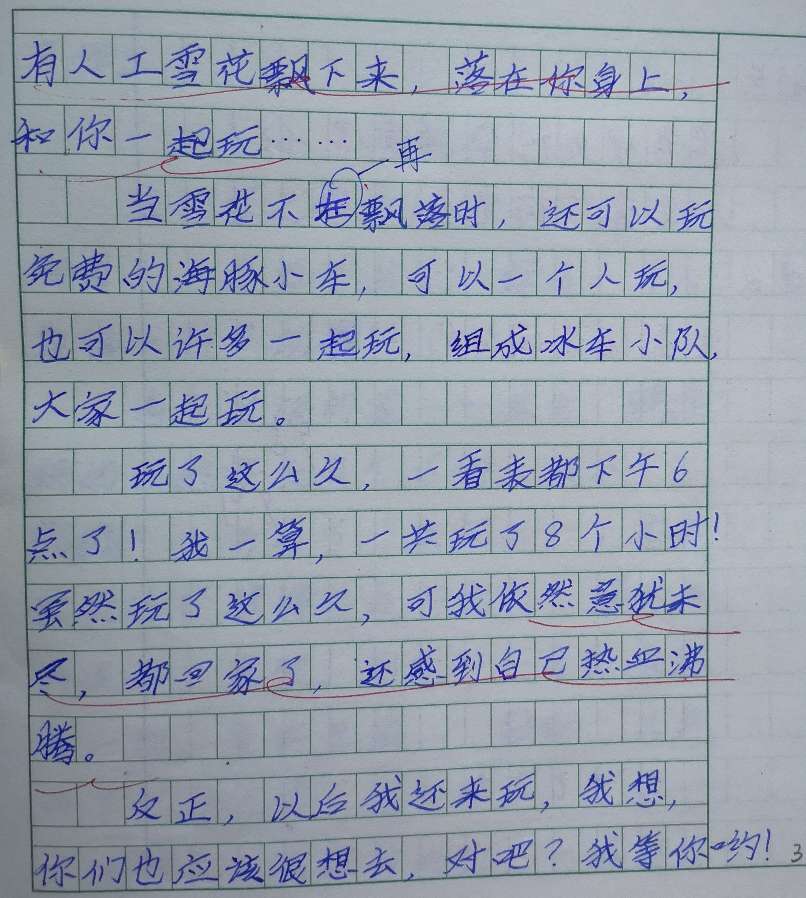 有人工雪花飘下来，落在你身上，
和你一起玩……
再
当雪花不在飘落时，还可以玩
免费的海豚小车，可以一个人玩，
也可以许多一起玩，组成冰车小队，
大家一起玩。
玩了这么久，一看表都下午6
点了！我一算，一共玩了8个小时！
虽然玩了这么久，可我依然意犹未
尽，都回家了，还感到自己热血沸
腾。
反正，以后我还来玩，我想，
你们也应该很想去，对吧？我等你哟！3